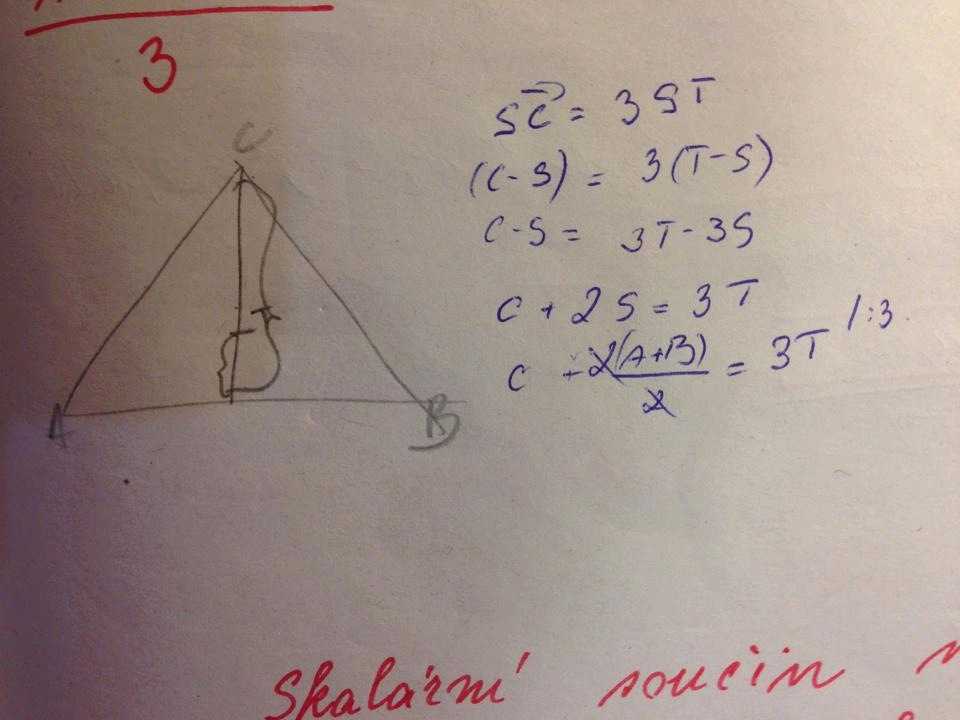 3
C
A
B
SC = 3 ST
(C-S) = 3(T-S)
C-S = 3T-3S
C + 2S = 3T
C + 2(A+B)/2 = 3T /:3
Skalární součin